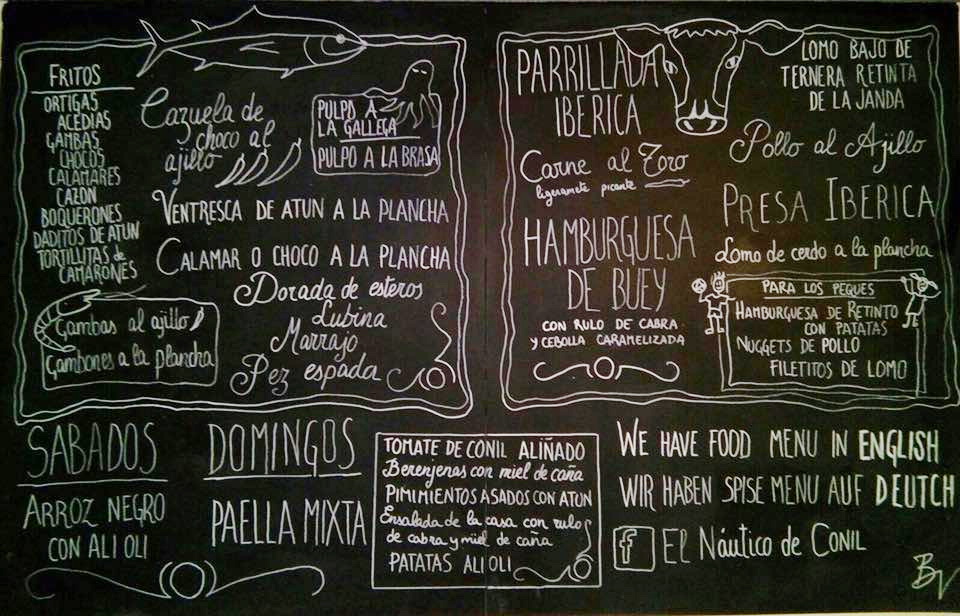 FRITOS
ORTIGAS
ACEDIAS
GAMBAS
CHOCOS
CALAMARES
CAZON
BOQUERONES
DADITOS DE ATUN
TORTILLITAS de
CAMARONES
Cazuela de
choco al
ajillo
PULPO A
LA GALLEGA
PULPO A LA BRASA
VENTRESCA DE ATUN A LA PLANCHA
CALAMAR O CHOCO A LA PLANCHA
Dorada de esteros
Lubina
Marrajo
Pez espada
Gambas al ajillo
Gambones a la plancha
PARRILLADA
IBERICA
Carne al Toro
ligeramete picante
HAMBURGUESA
DE BUEY
CON RULO DE CABRA
Y CEBOLLA CARAMELIZADA
LOMO BAJO DE
TERNERA RETINTA
DE LA JANDA
Pollo al Ajillo
PRESA IBERICA
Lomo de cerdo a la plancha
PARA LOS PEQUES
HAMBURGUESA DE RETINTO
CON PATATAS
NUGGETS DE POLLO
FILETITOS DE LOMO
SABADOS
ARROZ NEGRO
CON ALI OLI
DOMINGOS
PAELLA MIXTA
TOMATE DE CONIL ALIÑADO
Berenjenas con miel de caña
PIMIMIENTOS ASADOS CON ATUN
Ensalada de la casa con rulo
de cabra y miel de caña
PATATAS ALI OLI
WE HAVE FOOD MENU IN ENGLISH
WIR HABEN SPISE MENU AUF DEUTCH
f El Náutico de Conil
BV